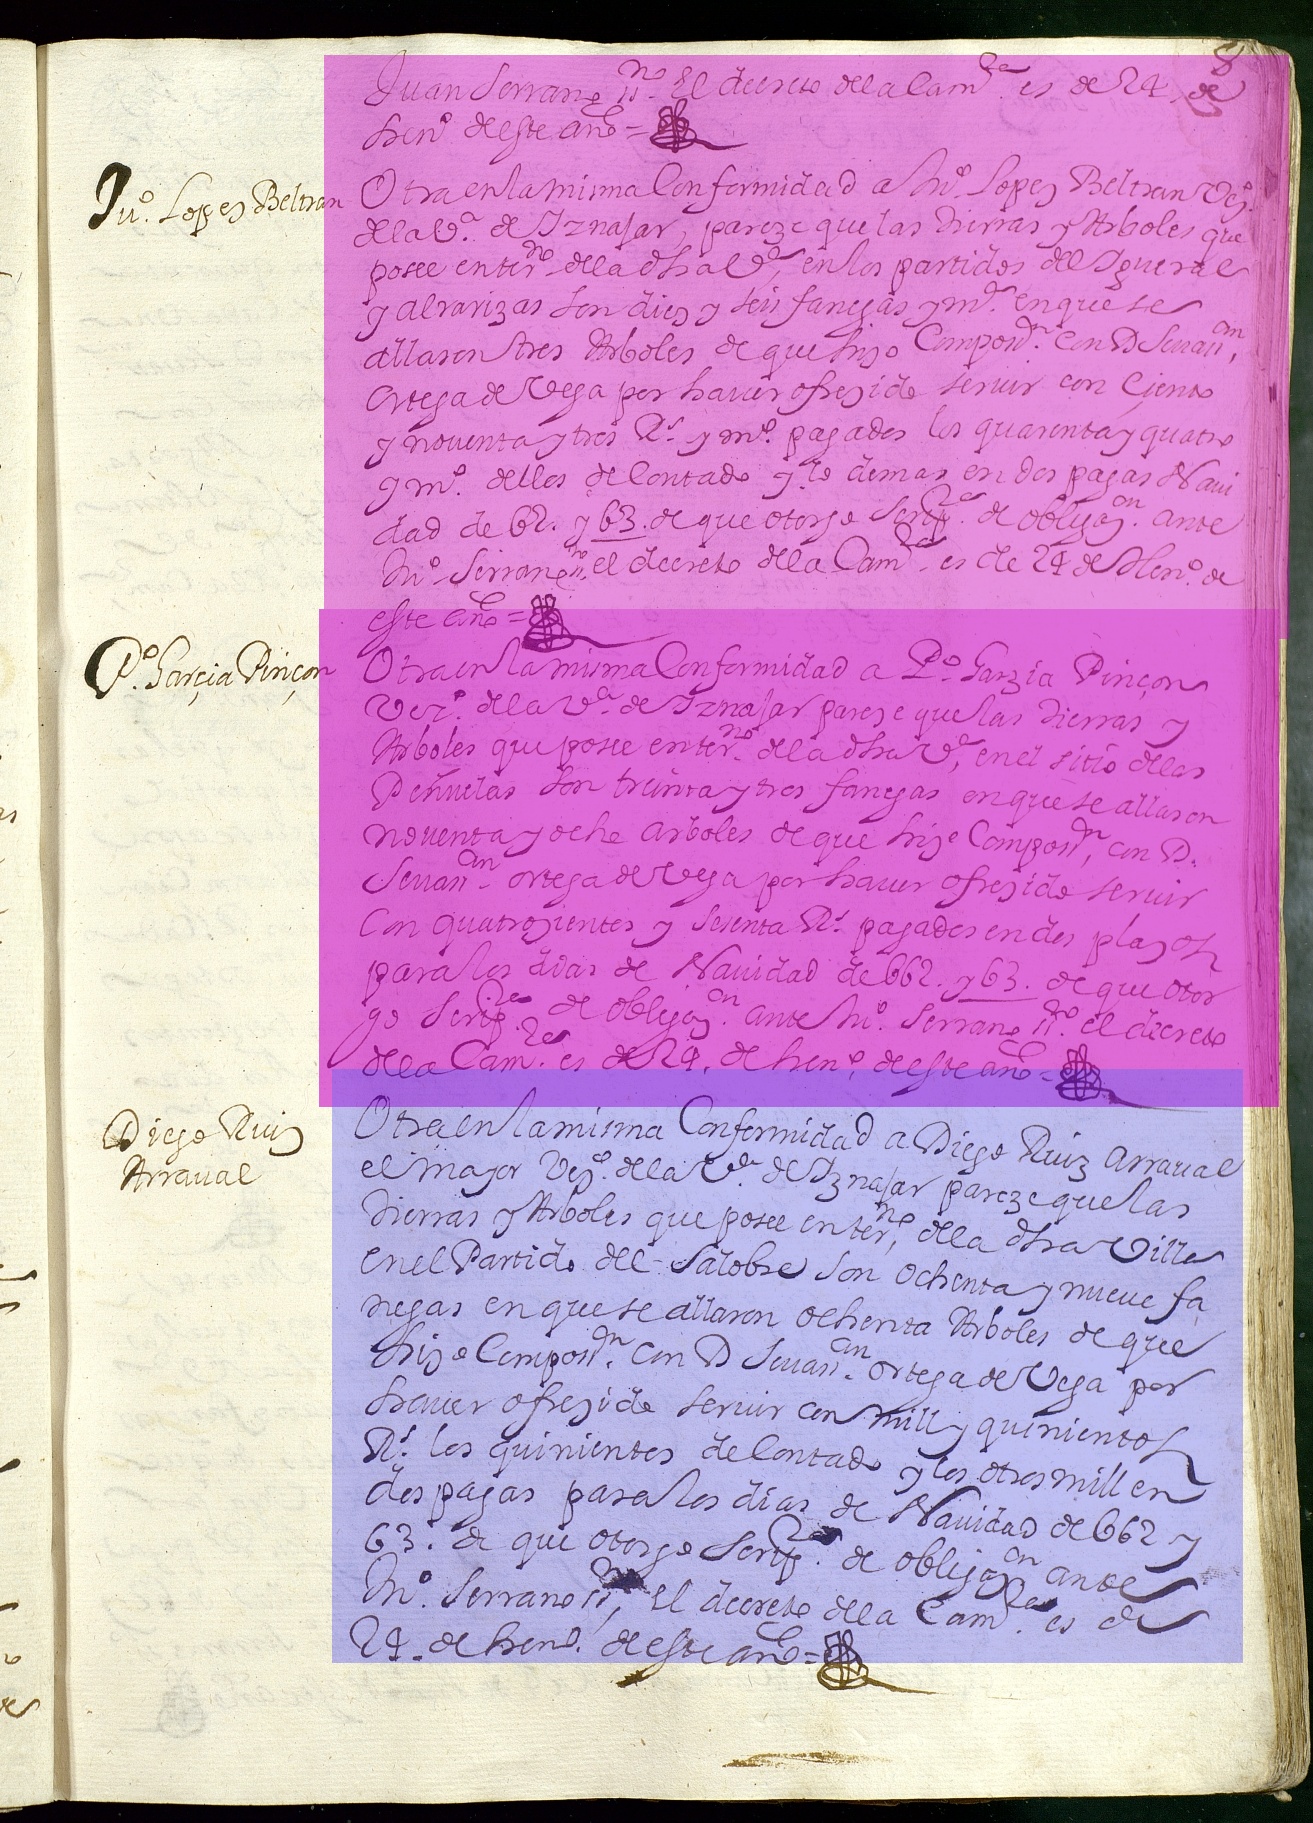 8
Juan Serrano ss.no El decreto de la Cam.ra es de 24 de
hen.o deste año =
Ju.o Lopez Beltran
Otra en la misma Conformidad a Ju.o Lopez Beltran Vez.o
de la V.a de Iznajar, pareze que las tierras y Arboles que
posee en ter.no de la dha V.a, en los partidos del Igueral
y alrarizas son diez y seis fanegas y m.a en que se
allaron tres Arboles de que hizo Compos.on con D Seuas.an
Ortega de Vega por hauer ofrezido seruir con Ciento
y nouenta y tres R.s y m.o pagados los quarenta y quatro
y m.o dellos de Contado y lo demas en dos pagas Naui
dad de 62. y 63. de que otorgo scrip.ra de obligaz.on ante
Ju.o Serrano ss.no el decreto de la Cam.ra es de 24 de Hen.o de
este año =
P.o Garçia Pinçon
Otra en la misma Conformidad a P.o Garzia Pinçon
Vez.o de la V.a de Iznajar pareze que las tierras y
Arboles que posee en ter.no de la dha V.a, en el sitio de las
Peñuelas son treinta y tres fanegas en que se allaron
nouenta y ocho arboles de que hizo Compos.on, con D.
Seuas.an ortega de Vega por hauer ofrezido seruir
Con quatrozientos y sesenta R.s pagados en dos plazos
para los dias de Nauidad de 662. y 63. de que otor
go scrip.ra de obligaz.on ante Ju.o Serrano ss.no el decreto
de la Cam.ra es de 24. de hen.o deste año =
Diego Ruiz
Arraual
Otra en la misma Conformidad a Diego Ruiz arraual
el mayor Vez.o de la V.a de Iznajar pareze que las
tierras y Arboles que posee en ter.no de la dha Villa
en el Partido del Salobre son ochenta y nueue fa
negas en que se allaron ochenta Arboles de que
hizo Compos.on con D Seuas.an ortega de Vega por
hauer ofrezido seruir con mill y quinientos
R.s los quinientos de Contado y los otros mill en
dos pagas para los dias de Nauidad de 662 y
63. de que otorgo scrip.ra de obligaz.on ante
Ju.o Serrano ss.no, El decreto de la Cam.ra es de
24. de hen.o deste año =